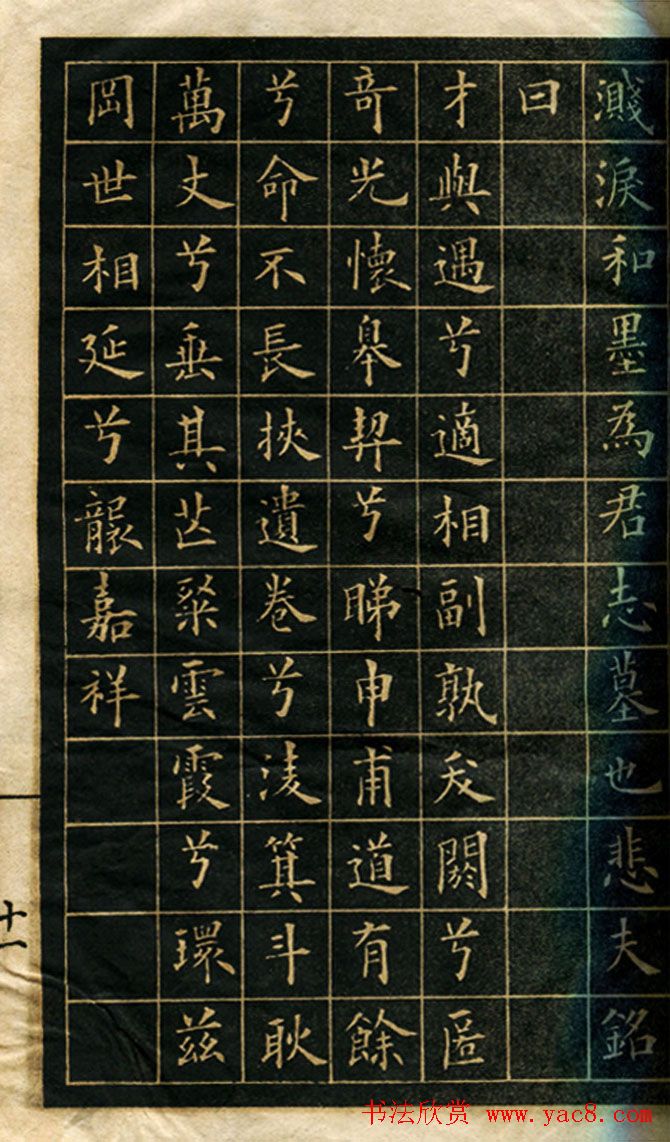 濺淚和墨為君志墓也悲夫銘
曰
才與遇兮適相副孰夭閼兮匿
竒光懷皋契兮睇申甫道有餘
兮命不長挾遺卷兮淩箕斗耿
萬丈兮垂其芒粲雲霞兮環茲
岡世相延兮襲嘉祥
十一
书法欣赏 www.yac8.com